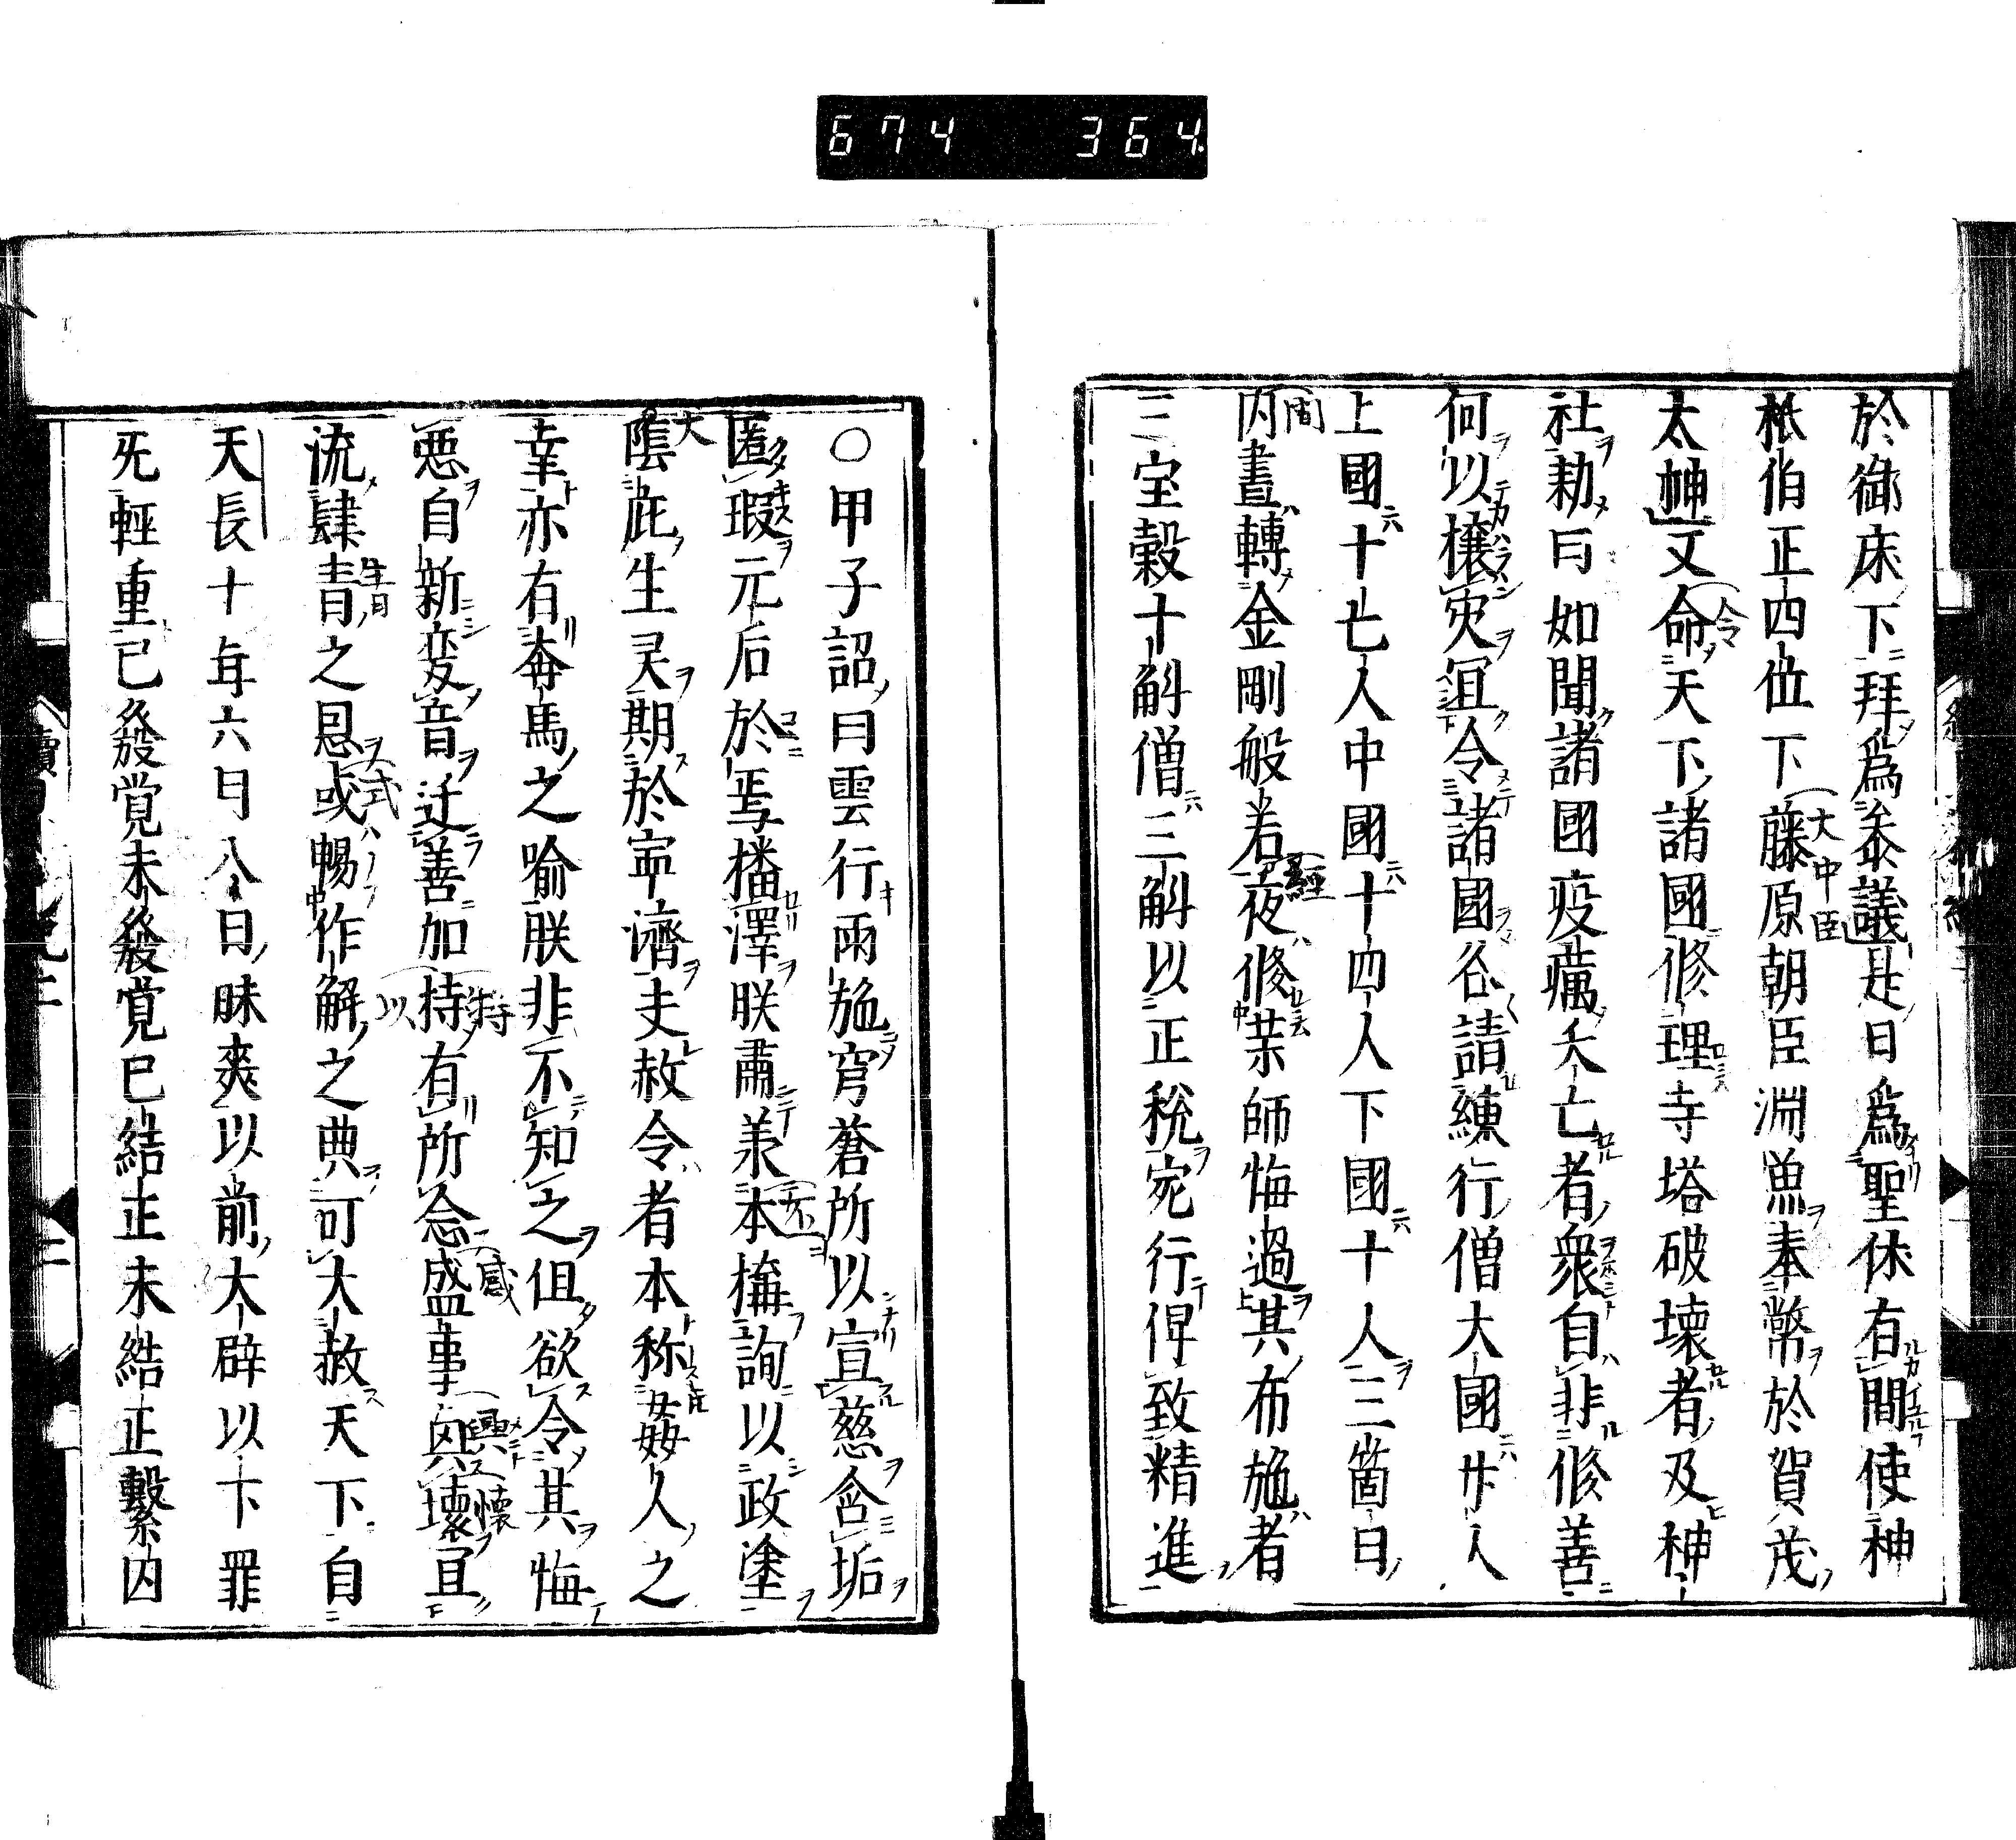 674 364
於御床下拜爲叅議是日爲聖休有間使神
祇伯正四位下藤原朝臣淵魚奉幣於賀茂
太神又命天下諸國修理寺塔破壞者及神
社勑曰如聞諸國疫癘夭亡者衆自非修善
何以攘灾冝令諸國各請練行僧大國廿人
上國十七人中國十四人下國十人三箇日
内晝轉金剛般若夜修藥師悔過其布施者
三宝穀十斛僧三斛以正税宛行俾致精進
○甲子詔曰雲行雨施穹蒼所以宣慈含垢
匿瑕元后於焉播澤朕肅羕本搆詢以政塗
隂庇生灵期於寕濟夫赦令者本称姧人之
幸亦有奔馬之喻朕非不知之但欲令其悔
惡自新変音迁善加持有所念盛事㓙壞冝
流肆青之恩或暢作解之典可大赦天下自
天長十年六月八日昧爽以前大辟以下罪
无輕重已發覚未發覚已結正未結正繫囚